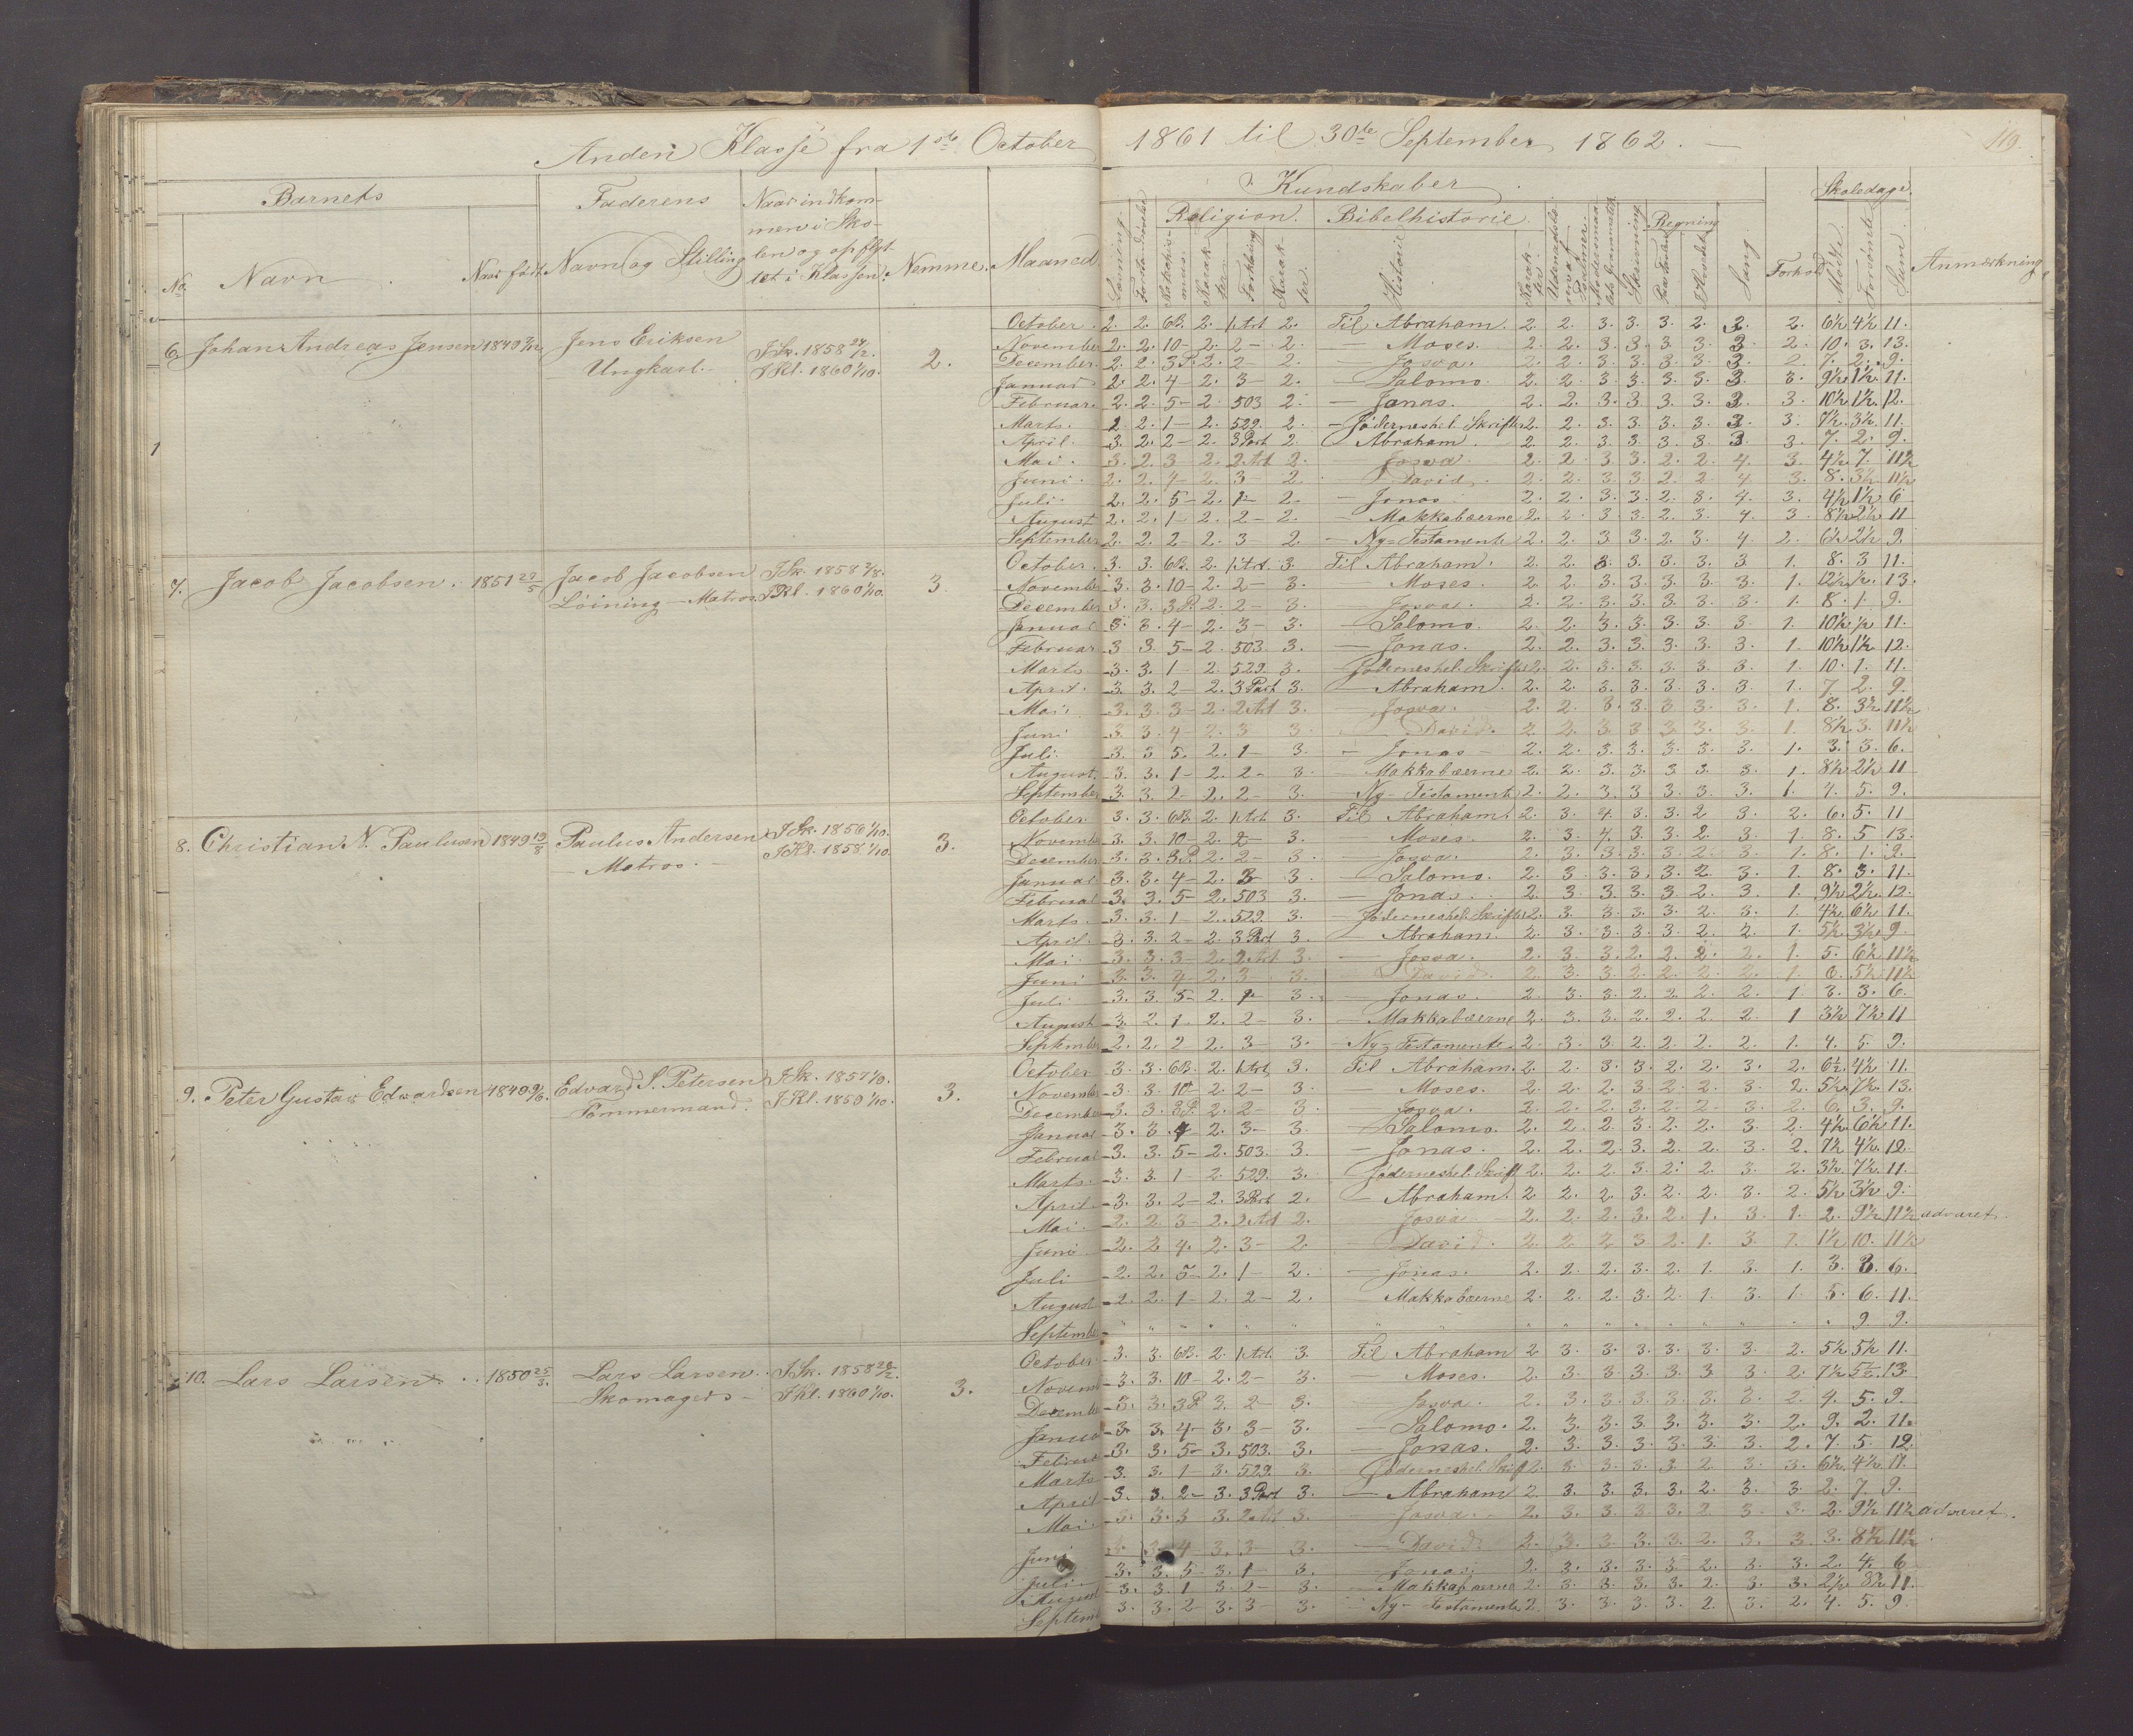 Anden Klasse fra 1ste October 1861 til 30te September 1862. 119.
Barnets Faderens Naar indkommen i Skolen og opflyttet i Klassen. Nemme. Maaned
No. Navn Naar født. Navn og Stilling
Kundskaber Skoledage.
Religion. Bibelhistorie. Regning
Læsning. Historie Skrivning Sang Forhold Mødte. Forsømte Sum. Anmærkning
6. Johan Andreas Jensen 1849 Jens Eriksen I Sk. 1858 2.
Ungkarl. I Kl. 1860 1/10.
October. 2. 2. 6B. 2. 1 Art 2. Til Abraham. 2. 2. 3. 3. 3. 2. 3. 2. 6½ 4½ 11.
November 2. 2. 10 - 2. 2 - 2. — Moses. 2. 2. 3. 3. 3. 3. 3. 2. 10. 3. 13.
December. 2. 2. 3P. 2. 2 - 2. — Josva. 2. 2. 3. 3. 3. 3. 3. 2. 7. 2. 9.
Januar. 2. 2. 4 - 2. 3 - 2. — Salomo. 2. 2. 3. 3. 3. 3. 3. 3. 9½ 1½ 11.
Februar. 2. 2. 5 - 2. 503 2. — Jonas. 2. 2. 3. 3. 3. 3. 3. 3. 10½ 1½ 12.
Marts. 2. 2. 1 - 2. 529. 2. — Jødernes hel. Skrifter 2. 2. 3. 3. 3. 3. 3. 3. 7½ 3½ 11.
April. 3. 2. 2 - 2. 3 Part 2. — Abraham. 2. 2. 3. 3. 3. 3. 3. 3. 7. 2. 9.
Mai. 3. 2. 3 2. 2 Art 2. — Josva. 2. 2. 3. 3. 2. 2. 4. 3. 4½ 7. 11½
Juni. 2. 2. 4 - 2. 3 - 2. — David. 2. 2. 3. 3. 2. 2. 4. 3. 8. 3½ 11½
Juli. 2. 2. 5 - 2. 1 - 2. — Jonas. 2. 2. 3. 3. 2. 3. 4. 3. 4½ 1½ 6
August 2. 2. 1 - 2. 2 - 2. — Makkabæerne 2. 2. 3. 3. 2. 3. 4. 3. 8½ 2½ 11
September 2. 2. 2 - 2. 3 - 2. — Ny-Testamente 2. 2. 3. 3. 2. 3. 4. 2. 6½ 2½ 9.
7. Jacob Jacobsen. 1851 27/5 Jacob Jacobsen I Sk. 1858 3.
Løining - Matros. I Kl. 1860 1/10.
October. 3. 3. 6B. 2. 1 Art. 3. Til Abraham. 2. 2. 3. 3. 3. 3. 3. 1. 8. 3 11.
November 3. 3. 10 - 2. 2 - 3. — Moses. 2. 2. 3. 3. 3. 3. 3. 1. 12½ ½. 13.
December 3. 3. 3P. 2. 2 - 3. — Josva. 2. 2. 3. 3. 3. 3. 3. 1. 8. 1. 9.
Januar 3. 3. 4 - 2. 3 - 3. — Salomo. 2. 2. 3. 3. 3. 3. 3. 1. 10½ ½ 11.
Februar 3 3. 5 - 2. 503 3. — Jonas. 2. 2. 3. 3. 3. 3. 3. 1. 10½ 1½ 12.
Marts 3. 3. 1 - 2. 529. 3. — Jødernes hel. Skrifter 2. 2. 3. 3. 3. 3. 3. 1. 10. 1. 11.
April. 3. 3. 2 - 2. 3 Part 3. — Abraham. 2. 2. 3. 3. 3. 3. 3. 1. 7. 2. 9.
Mai. 3. 3. 3 - 2. 2 Art 3. — Josva. 2. 2. 3. 3. 3. 3. 3. 1. 8. 3½ 11½
Juni 3. 3. 4 - 2. 3 3. — David. 2. 2. 3. 3. 3. 3. 3. 1. 8½ 3. 11½
Juli. 3. 3 5. 2. 1 - 3. — Jonas - 2. 2. 3. 3. 3. 3. 3. 1. 3. 3. 6.
August. 3. 3. 1 - 2. 2 - 3. — Makkabæerne 2. 2. 3. 3. 3. 3. 3. 1. 8½ 2½ 11
September 3. 3. 2 - 2. 2 - 3. — Ny-Testamente 2. 2. 3. 3. 3. 3. 3. 1. 4. 5. 9.
8. Christian N. Paulusen 1849 19/8 Paulus Andersen I Sk. 1856 1/10. 3.
Matros. I Kl. 1858 1/10.
October. 3. 3. 6B. 2. 1 Art 3. Til Abraham. 2. 3. 4. 3. 3. 2 3. 2. 6. 5. 11
November 3. 3. 10 - 2. 2 - 3. Moses. 2. 3. 4. 3. 3. 2. 3. 1. 8. 5 13.
December 3. 3. 3P. 2. 2 - 3. — Josva. 2. 3. 3. 3. 3. 2. 3. 1. 8. 1. 9.
Januar 3. 3. 4 - 2. 3 3. — Salomo. 2. 3. 3. 3. 3. 2. 3. 1. 8. 3. 11.
Februar 3. 3. 5 - 2. 503 3. — Jonas. 2. 3. 3. 3. 3. 2. 3. 1. 9½ 2½. 12.
Marts. 3. 3. 1 - 2. 529. 3. — Jødernes hel. Skrifter 2. 3. 3. 3. 3. 2. 3. 1. 4½ 6½ 11.
April. 3. 3. 2 - 2. 3 Part 3. — Abraham. 2. 3. 3. 3. 3. 2. 2. 1. 5½ 3½ 9.
Mai. 3. 3. 3 - 2. 2 Art 3. — Josva. 2. 3. 3. 2. 2. 2. 2. 1. 5. 6½ 11½
Juni 3. 3. 4 - 2. 3 3. — David. 2. 3. 3. 2. 2. 2. 2. 1. 6. 5½ 11½
Juli 3. 3. 5 - 2. 1 - 3. — Jonas. 2. 3. 3. 2. 2. 2. 2. 1 3. 3. 6.
August 3. 2. 1 - 2. 2 - 3. — Makkabæerne 2. 3. 3. 2. 2. 2. 2. 1 3½ 7½ 11
September 2. 2. 2 2. 3 - 3. — Ny-Testamente. 2. 3. 3. 2. 2. 2. 2. 1. 4. 5. 9.
9. Peter Gustav Edvardsen 1849 Edvard S. Petersen I Sk. 1857 1/10. 3.
Tømmermand. I Kl. 1859 1/10.
October 3. 3. 6B. 2. 1 Art. 3. Til Abraham. 2. 2. 3. 3. 2. 2. 3. 2. 6½ 4½ 11.
November 3. 3. 10 2. 2 - 3. Moses. 2. 2. 2. 3. 2. 2. 3. 2. 5½ 7½ 13.
December 3. 3. 3P. 2. 2 - 3. — Josva. 2. 2. 2. 3. 2. 2. 3. 2. 6. 3. 9.
Januar 3. 3. 4 - 2. 3 - 3. — Salomo. 2. 2. 2. 3. 2. 2. 3. 2. 4½ 6½ 11.
Februar 3. 3. 5 - 2. 503. 3. — Jonas. 2. 2. 2. 3. 2. 2. 3. 2. 7½ 4½ 12.
Marts. 3. 3. 1 - 2. 529. 3. — Jødernes hel. Skrift 2. 2. 2. 3. 2. 2. 3. 2. 3½ 7½ 11.
April 3. 3. 2 - 2. 3 Part 2. — Abraham. 2. 2. 2. 3. 2. 2. 3. 2. 5½ 3½ 9.
Mai. 2. 2. 3 - 2. 2 Art 2. — Josva 2. 2. 2. 3. 2. 1. 3. 1. 2. 9½ 11½ advaret.
Juni 2. 2 4. 2. 3 - 2. — David. 2. 2. 2. 3 2. 1. 3. 1. 1½ 10. 11½
Juli 2. 2. 5 - 2. 1 - 2. — Jonas. 2. 2. 2. 3. 2. 1. 3. 1. 3. 3. 6.
August 2. 2. 1 - 2. 2 - 2. — Makkabæerne 2. 2. 2. 3. 2. 1. 3. 1. 5. 6. 11.
September " " " " " " " " " " " " " " " 9 9.
10. Lars Larsen 1850 25/3. Lars Larsen I Sk. 1858 3.
Skomager I Kl. 1860 1/10.
October. 3. 3. 6B. 2. 1 Art. 3 Til Abraham 2. 3. 3. 3. 3. 3. 3. 2. 5½ 5½ 11.
Novemb 3. 3. 10 - 2. 2 - 3. — Moses. 2. 3. 3 3 3. 3 3. 2. 7½ 5½. 13
Decembe 3. 3. 3P 3. 2 - 3. — Josva. 2. 3. 3. 3. 3. 3. 3. 2. 4. 5. 9.
Januar 3. 3. 4 - 3. 3 - 3. — Salomo. 2. 3. 3. 3. 3. 3. 3. 2. 9. 2. 11.
Februa 3. 3. 5 - 3. 503. 3. — Jonas. 2. 3. 3. 3. 3. 3. 3. 2. 7. 5. 12
Marts 3. 3. 1 - 3. 529. 3. — Jødernes hel. Skrif 2. 3. 3. 3. 3. 2. 3. 3. 6½ 4½ 11.
April 3. 3. 2 - 3. 3 Part 3. — Abraham 2. 3. 3. 3. 3. 2. 3. 3. 2. 7. 9.
Mai. 3. 3. 3 3. 2 Art 3. — Josva. 2. 3. 3. 3. 3. 2 3. 3. 2. 9½ 11½ advaret.
Juni 3. 3. 4 - 3. 3 - 3. — David 2. 3. 3. 3. 3. 2. 3. 3. 3. 8½ 11½
Juli 3. 3. 5 - 3. 1 - 3. — Jonas. 2. 3. 3. 3. 3. 2. 3. 3. 2. 4. 6
August 3. 3. 1 3. 2 - 3. — Makkabæerne 2. 3. 3. 3. 3. 2. 3. 3. 2½ 8½ 11.
Septem 3. 3. 2 - 3. 3 - 3. Ny-Testamente 2. 3. 3. 3. 3. 2. 3. 2. 4. 5. 9.